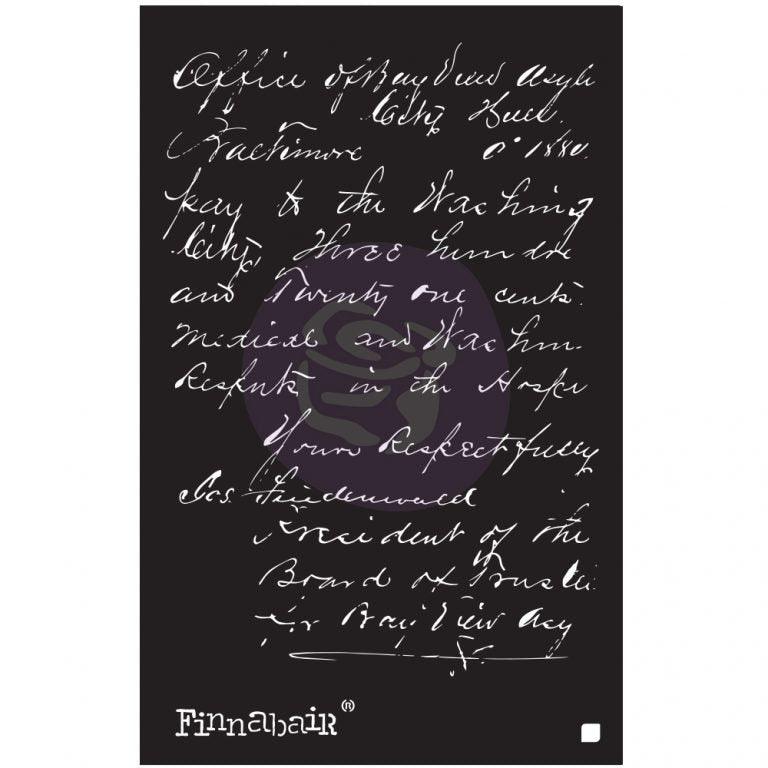 Office of Bay View Asyl
City
Baltimore 1880.
pay to the Washing
City, Three hundre
and Twenty one cents.
Medical and Washin
in the Hospi
Yours Respectfully
President of the
Board of Truste
for Bay View Asy
Finnabair (R)